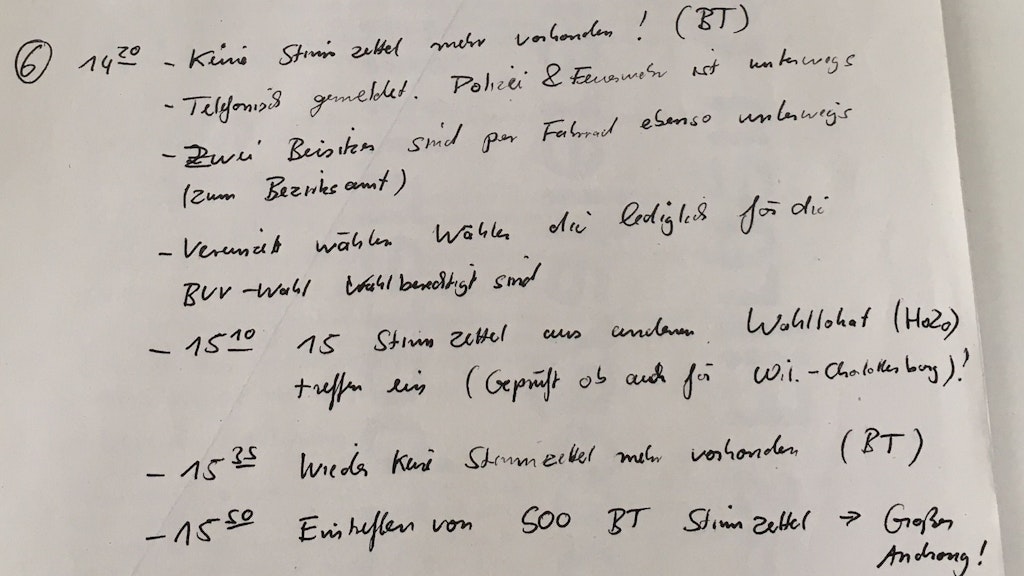 ⑥ 14²⁰ - Keine Stimmzettel mehr vorhanden! (BT)
- Telefonisch gemeldet. Polizei & Feuerwehr ist unterwegs
- Zwei Beisitzer sind per Fahrrad ebenso unterwegs
(zum Bezirksamt)
- Vereinzelt wählen Wähler die lediglich für die
BVV-Wahl Wahlberechtigt sind
- 15¹⁰ 15 Stimmzettel aus anderen Wahllokal (HoZo)
treffen ein (Geprüft ob auch für Wi.-Charlottenburg)!
- 15³⁵ Wieder keine Stimmzettel mehr vorhanden (BT)
- 15⁵⁰ Eintreffen von 500 BT Stimmzettel → Großer
Andrang!